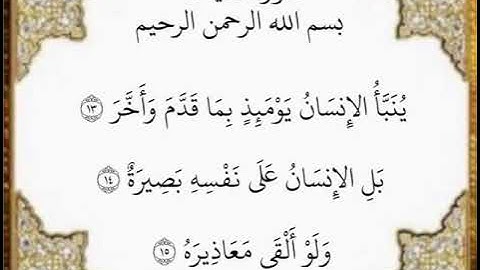 بسم الله الرحمن الرحيم
يُنَبَّأُ الإِنسَانُ يَوْمَئِذٍ بِمَا قَدَّمَ وَأَخَّرَ ﴿١٣﴾
بَلِ الإِنسَانُ عَلَى نَفْسِهِ بَصِيرَةٌ ﴿١٤﴾
وَلَوْ أَلْقَى مَعَاذِيرَهُ ﴿١٥﴾